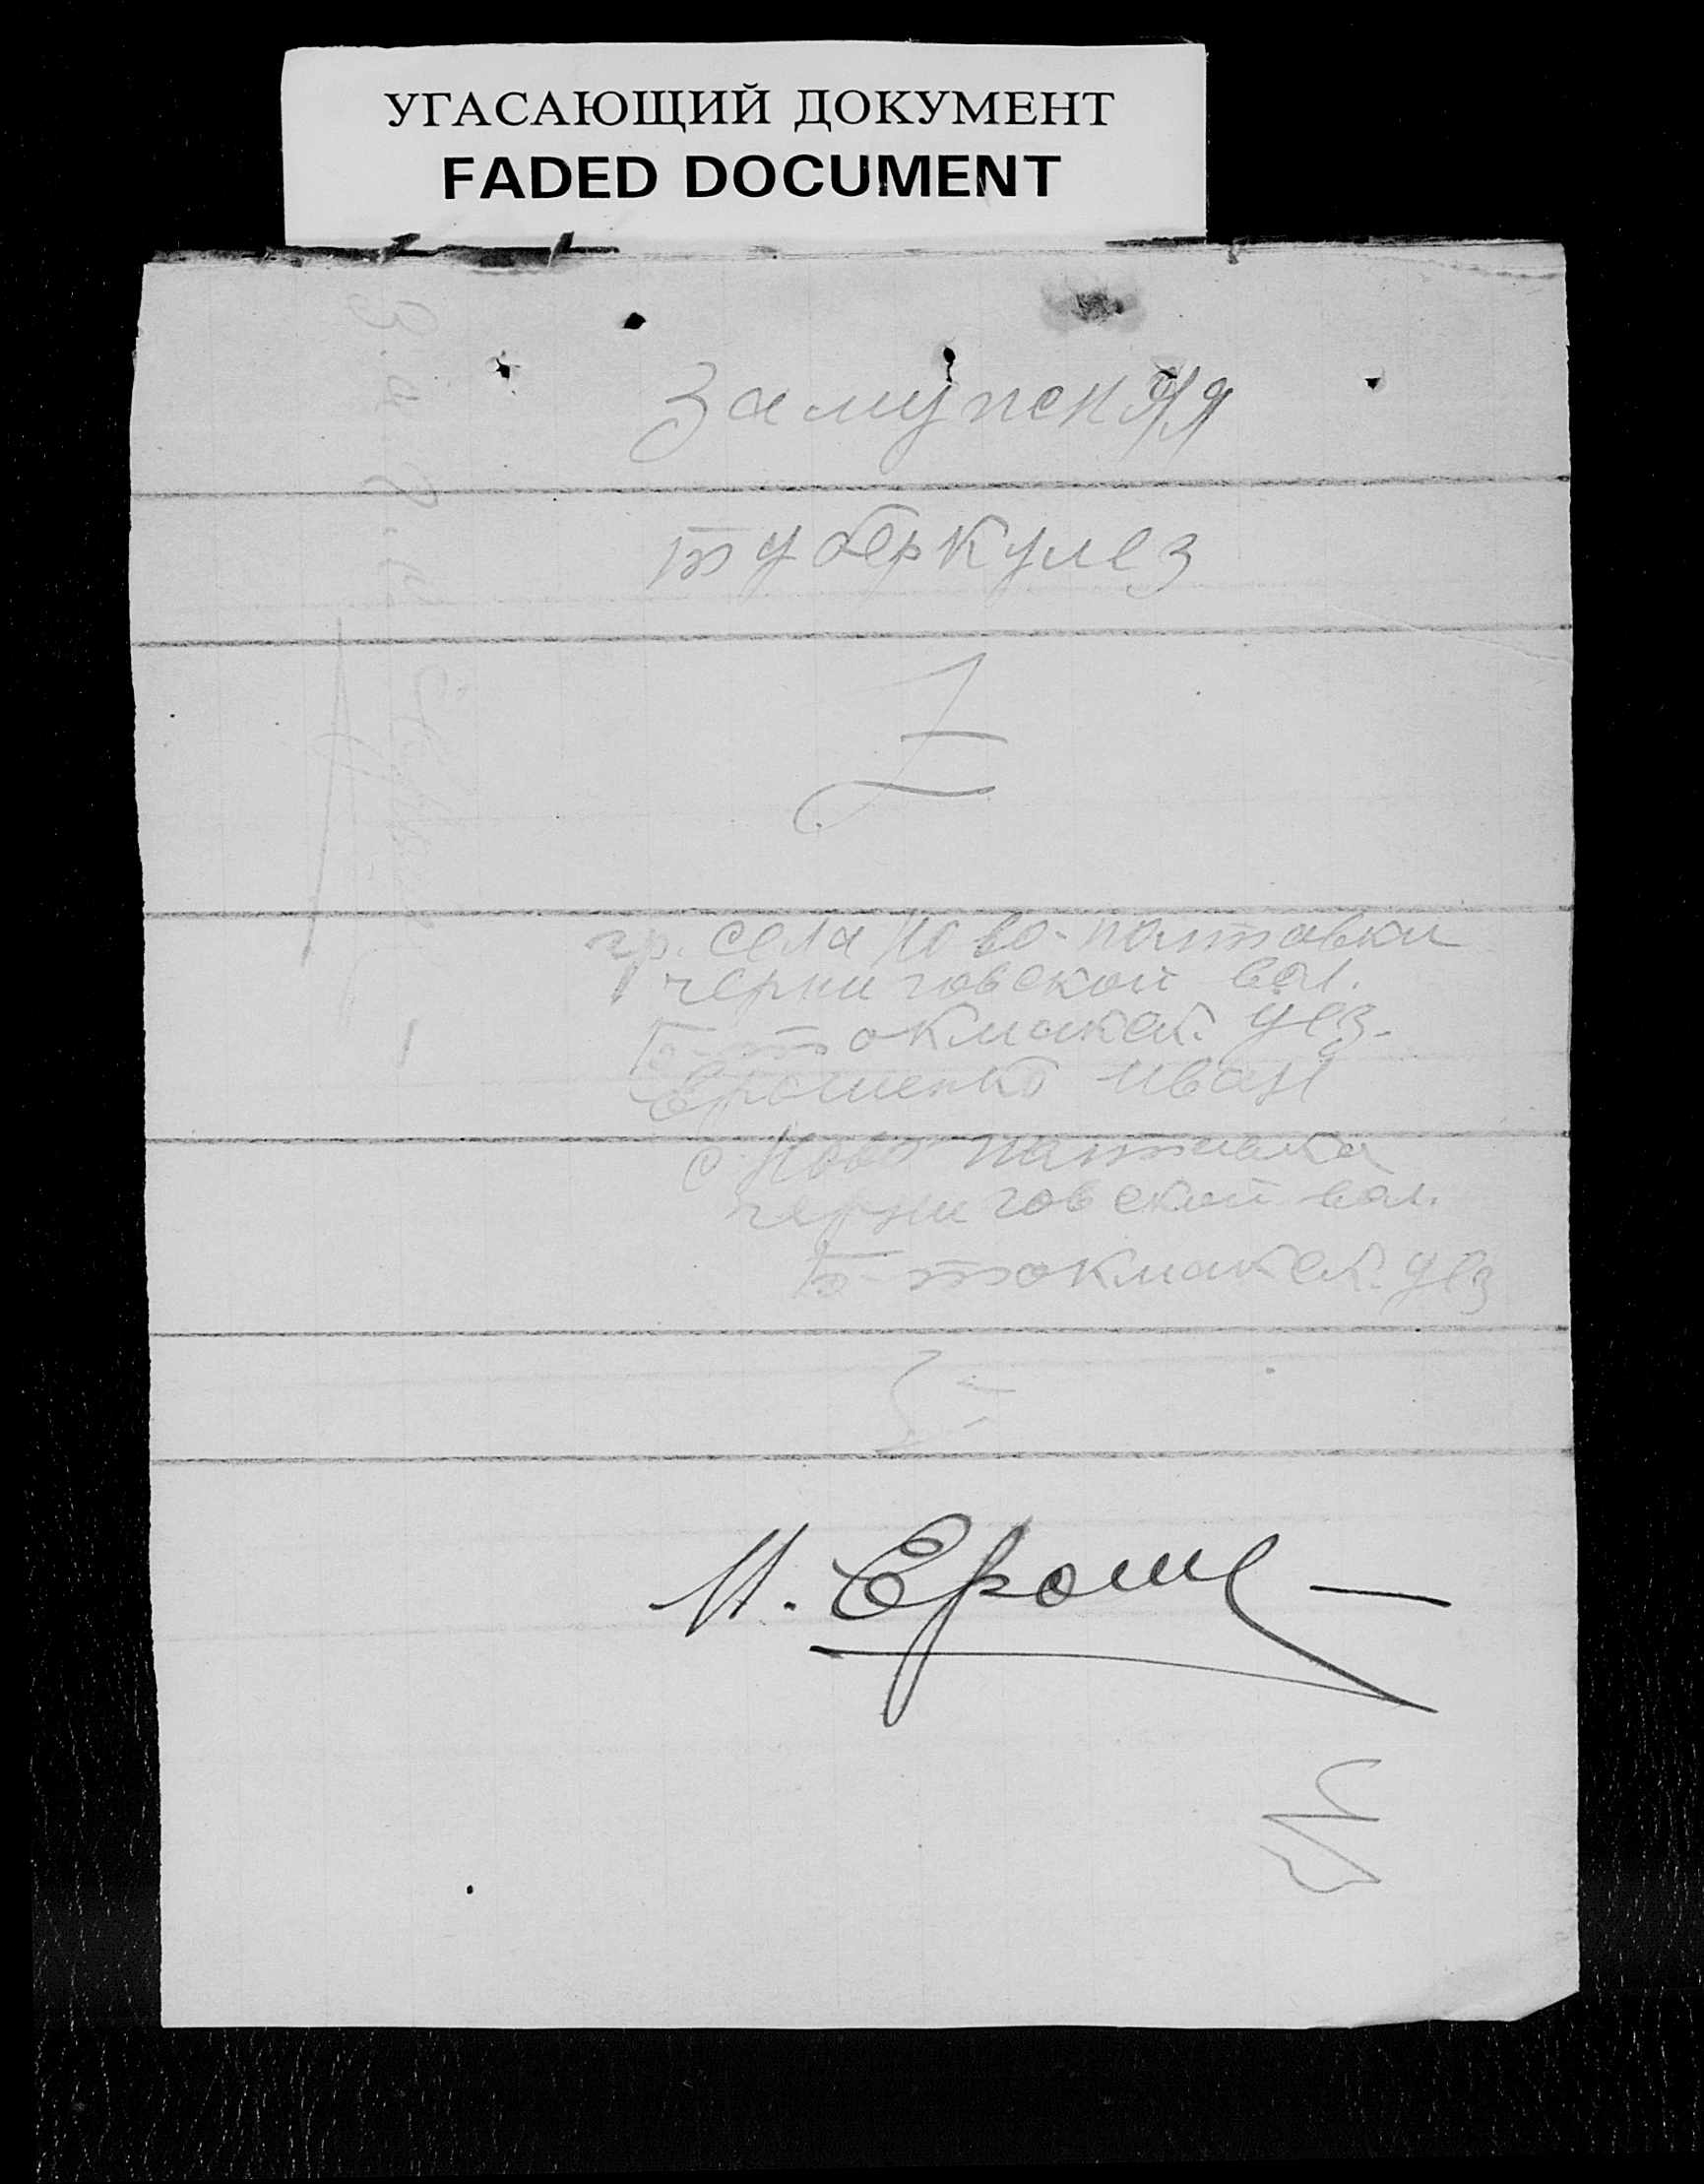 УГАСАЮЩИЙ ДОКУМЕНТ
FADED DOCUMENT
туберкулез
1
гр. села Ново-Полтавки
черниговской вол.
Б-токмакск. уез.
Ерошенко Иван
с Ново Полтавка
черниговской вол.
Б-токмакск. уез
И. Ероше —